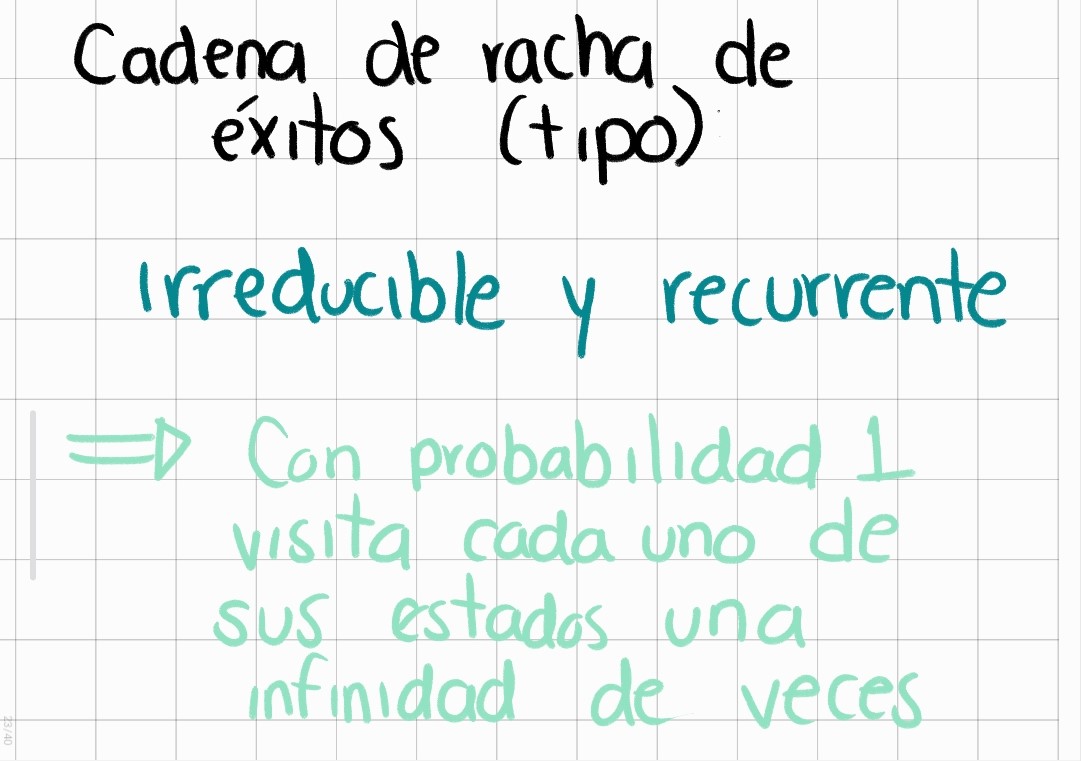 Cadena de racha de
éxitos (tipo)
irreducible y recurrente
⇒ Con probabilidad 1
visita cada uno de
sus estados una
infinidad de veces
23/40